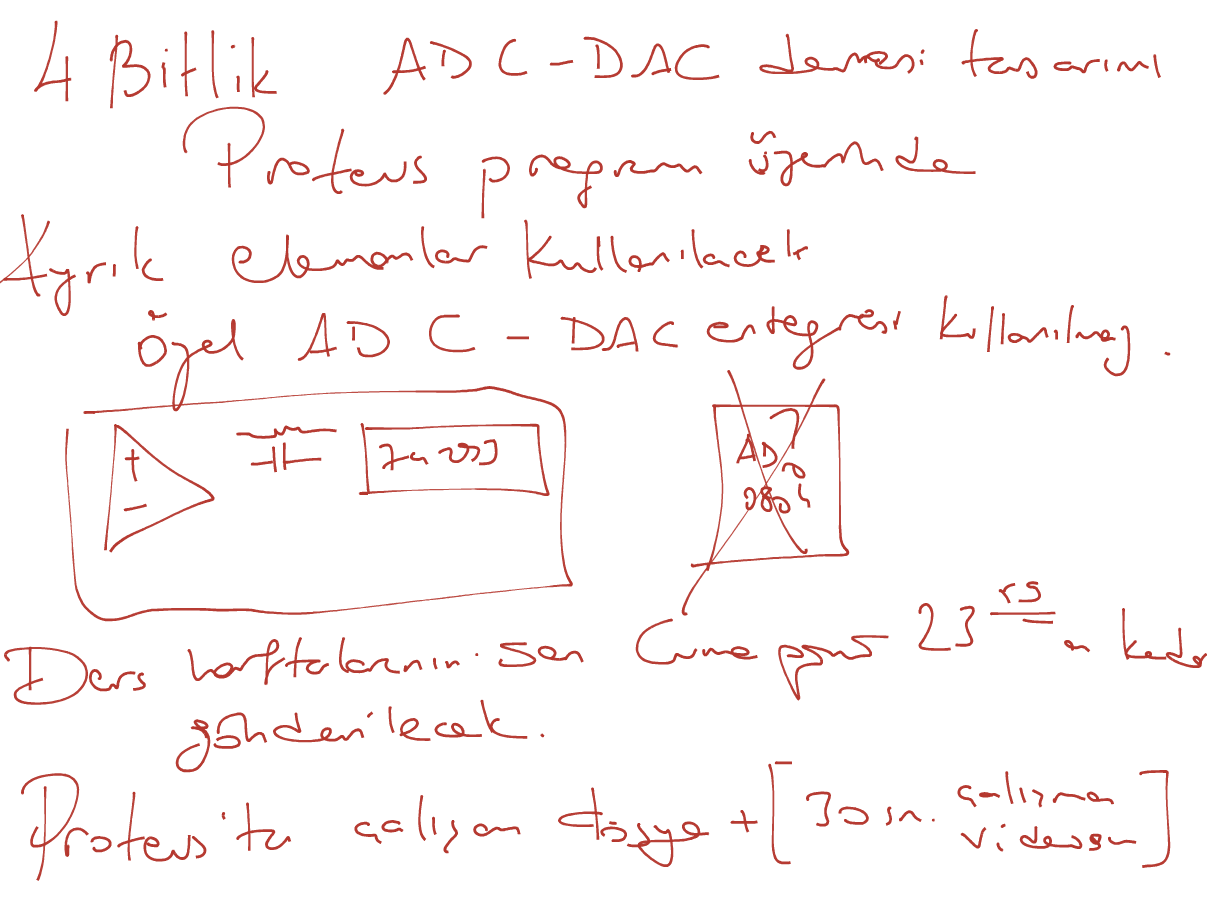 4 Bitlik ADC-DAC devresi tasarımı
Proteus program üzerinde
Ayrık elemanlar kullanılacak
Özel ADC-DAC entegresi kullanılmaz.
+
-
AD
0804
Ders haftalarının son Cuma günü 23 a kadar
gönderilecek.
Proteus'ta çalışan dosya + [30 sn. çalışma
videosu]